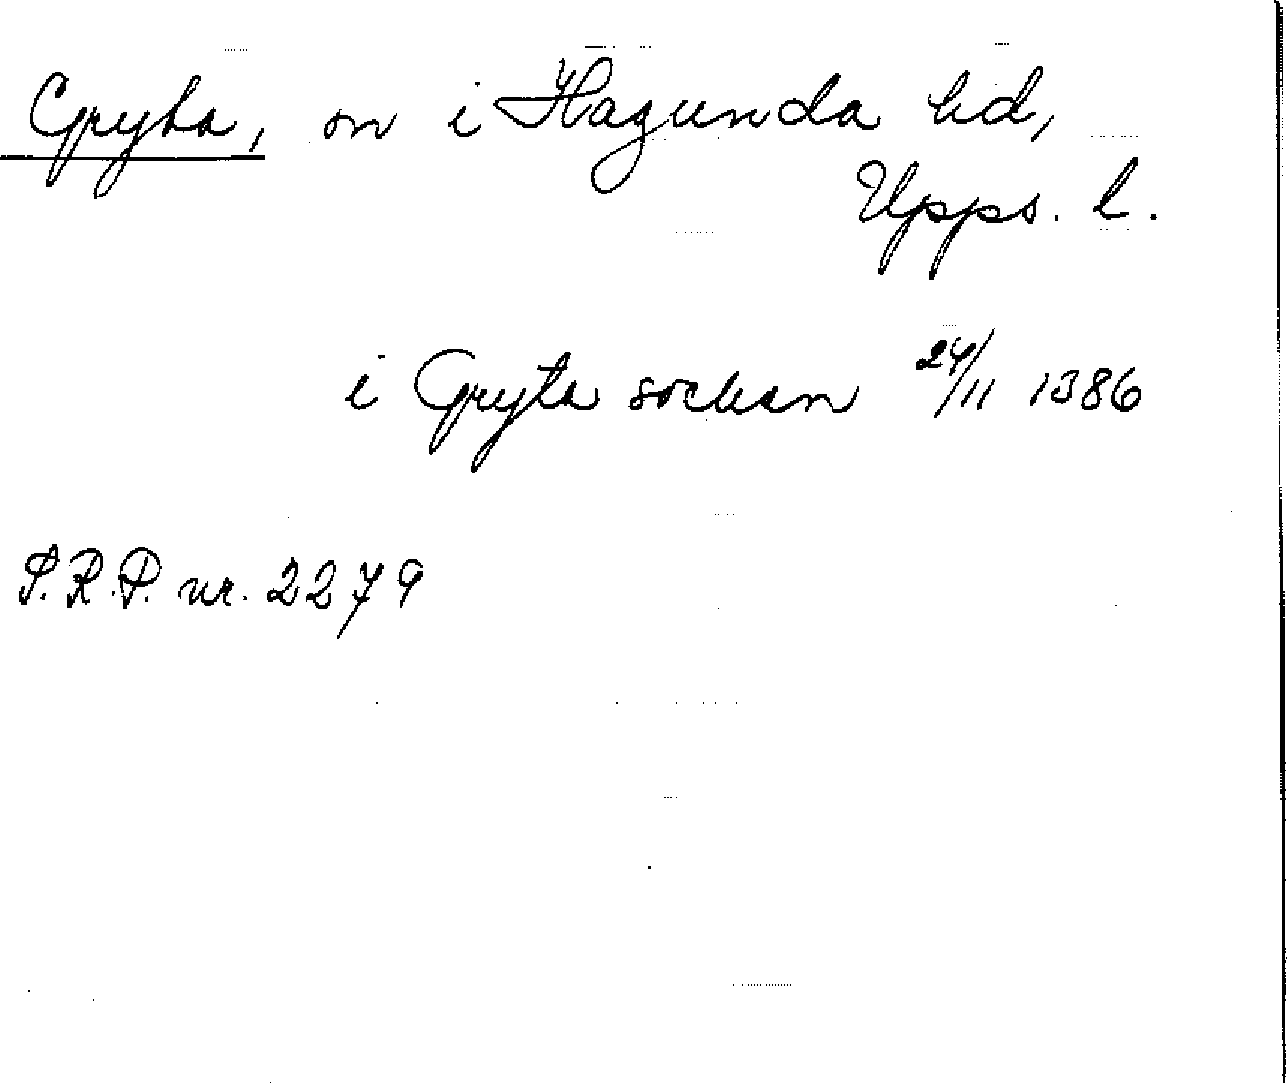 Gryta, sn i Hagunda hd,
Upps. l.
i Gryta sockan 24/11 1386
S.R.P. nr. 2279